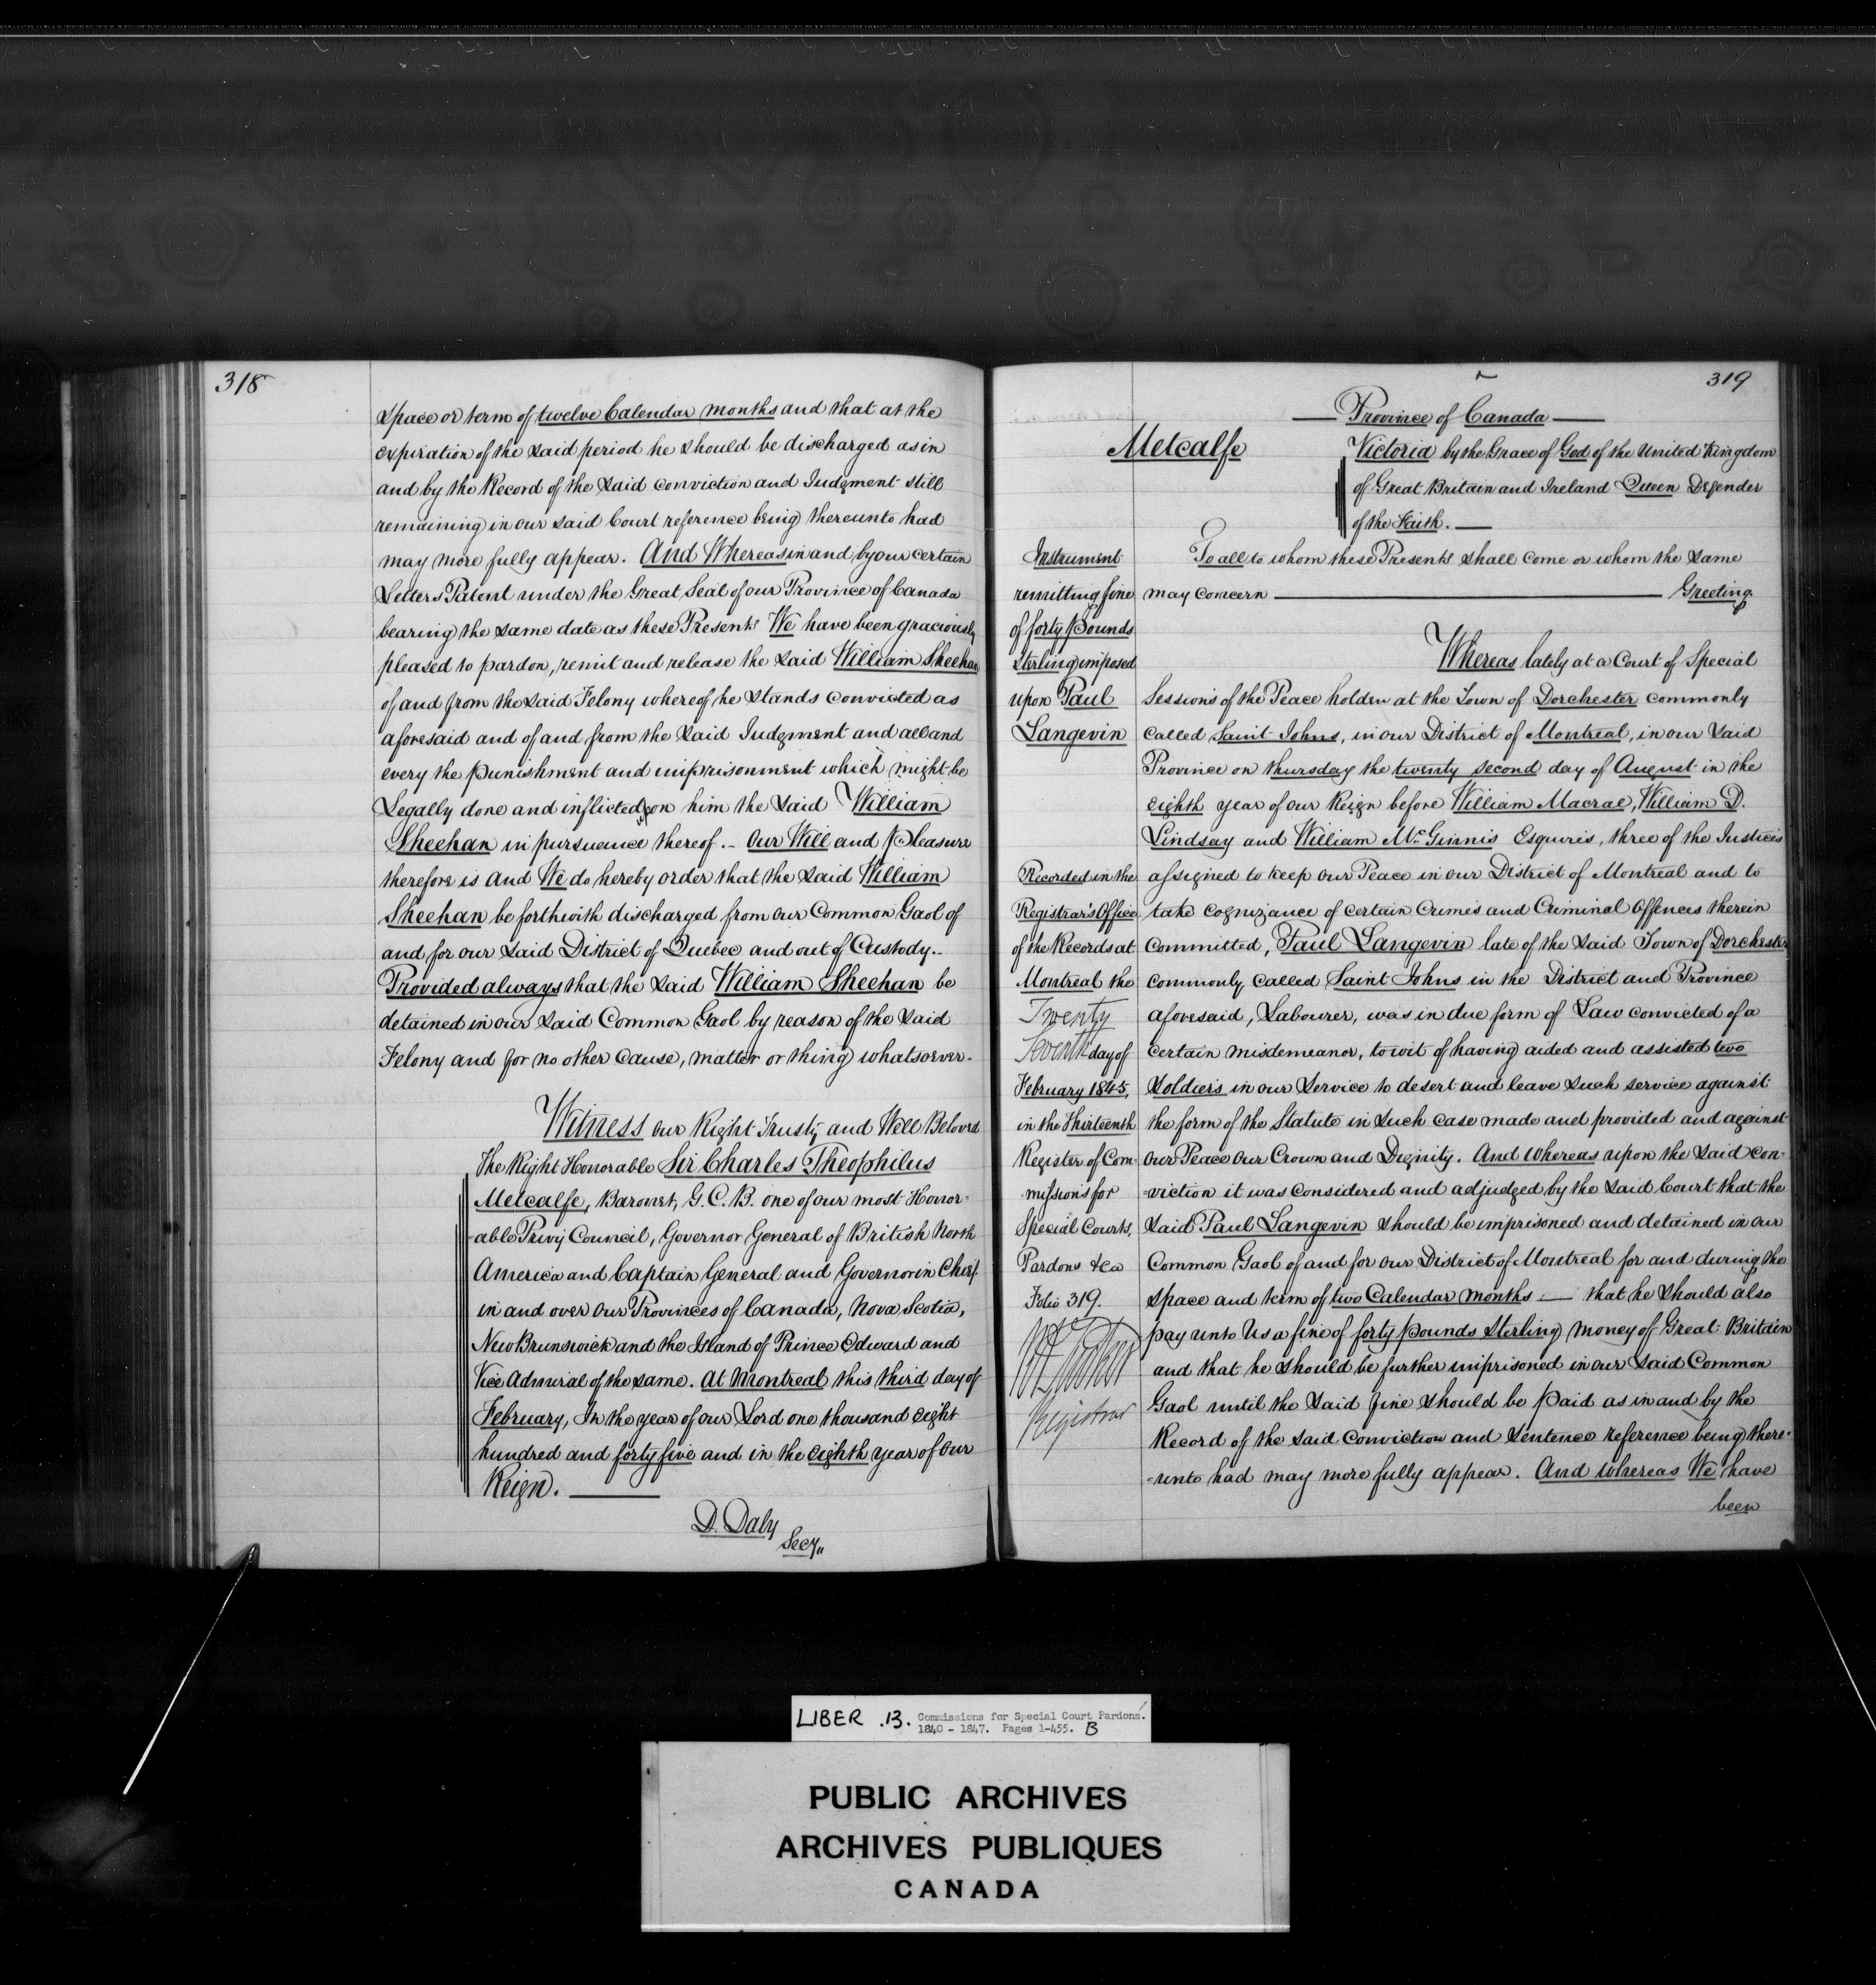 318
space or term of twelve Calendar months and that at the
expiration of the said period he should be discharged as in
and by the Record of the said conviction and Judgment still
remaining in our said Court reference being thereunto had
may more fully appear. And Whereas in and by our certain
Letters Patent under the Great Seal of our Province of Canada
bearing the same date as these Presents We have been graciously
pleased to pardon, remit and release the said William Sheehan
of and from the said Felony whereof he stands convicted as
aforesaid and of and from the said Judgment and all and
every the punishment and imprisonment which might be
Legally done and inflicted on him the said William
Sheehan in pursuance thereof.- Our Will and Pleasure
therefore is and We do hereby order that the said William
Sheehan be forthwith discharged from our Common Gaol of
and for our said District of Quebec and out of Custody.-
Provided always that the said William Sheehan be
detained in our said Common Gaol by reason of the said
Felony and for no other cause, matter or thing whatsoever.
Witness our Right Trusty and Well Beloved
The Right Honorable Sir Charles Theophilus
Metcalfe, Baronet, G.C.B. one of our most Honor-
-able Privy Council, Governor General of British North
America and Captain General and Governor in Chief
in and over our Provinces of Canada, Nova Scotia,
New Brunswick and the Island of Prince Edward and
Vice Admiral of the same. At Montreal this third day of
February, In the year of our Lord one thousand eight
hundred and forty five and in the eighth year of our
Reign.
D. Daly
Secy.,
319
Province of Canada
Metcalfe
Victoria by the Grace of God of the United Kingdom
of Great Britain and Ireland Queen Defender
of the Faith.
To all to whom these Presents shall come or whom the same
may concern Greeting.
Instrument
remitting fine
of forty Pounds
Sterling imposed
upon Paul
Langevin
Whereas lately at a Court of Special
Sessions of the Peace holden at the Town of Dorchester commonly
called Saint Johns, in our District of Montreal, in our said
Province on thursday the twenty second day of August in the
eighth year of our Reign before William Macrae, William D.
Lindsay and William McGinnis Esquires, three of the Justices
assigned to keep our Peace in our District of Montreal and to
take cognizance of certain Crimes and Criminal Offences therein
committed, Paul Langevin late of the said Town of Dorchester
commonly called Saint Johns in the District and Province
aforesaid, Labourer, was in due form of Law convicted of a
certain misdemeanor, to wit of having aided and assisted two
soldiers in our service to desert and leave such service against
the form of the Statute in such case made and provided and against
our Peace our Crown and Dignity. And whereas upon the said con-
-viction it was considered and adjudged by the said Court that the
said Paul Langevin should be imprisoned and detained in our
Common Gaol of and for our District of Montreal for and during the
space and term of two Calendar months — that he should also
pay unto Us a fine of forty pounds Sterling money of Great Britain
and that he should be further imprisoned in our said Common
Gaol until the said fine should be paid as in and by the
Record of the said Conviction and Sentence reference being there-
-unto had may more fully appear. And whereas We have
been
Recorded in the
Registrar's Office
of the Records at
Montreal the
Twenty
Seventh day of
February 1845,
in the Thirteenth
Register of Com-
-missions for
Special Courts,
Pardons &ca
Folio 319.
Registrar
LIBER .13. Commissions for Special Court Pardons.
1840 - 1847. Pages 1-455. B
PUBLIC ARCHIVES
ARCHIVES PUBLIQUES
CANADA